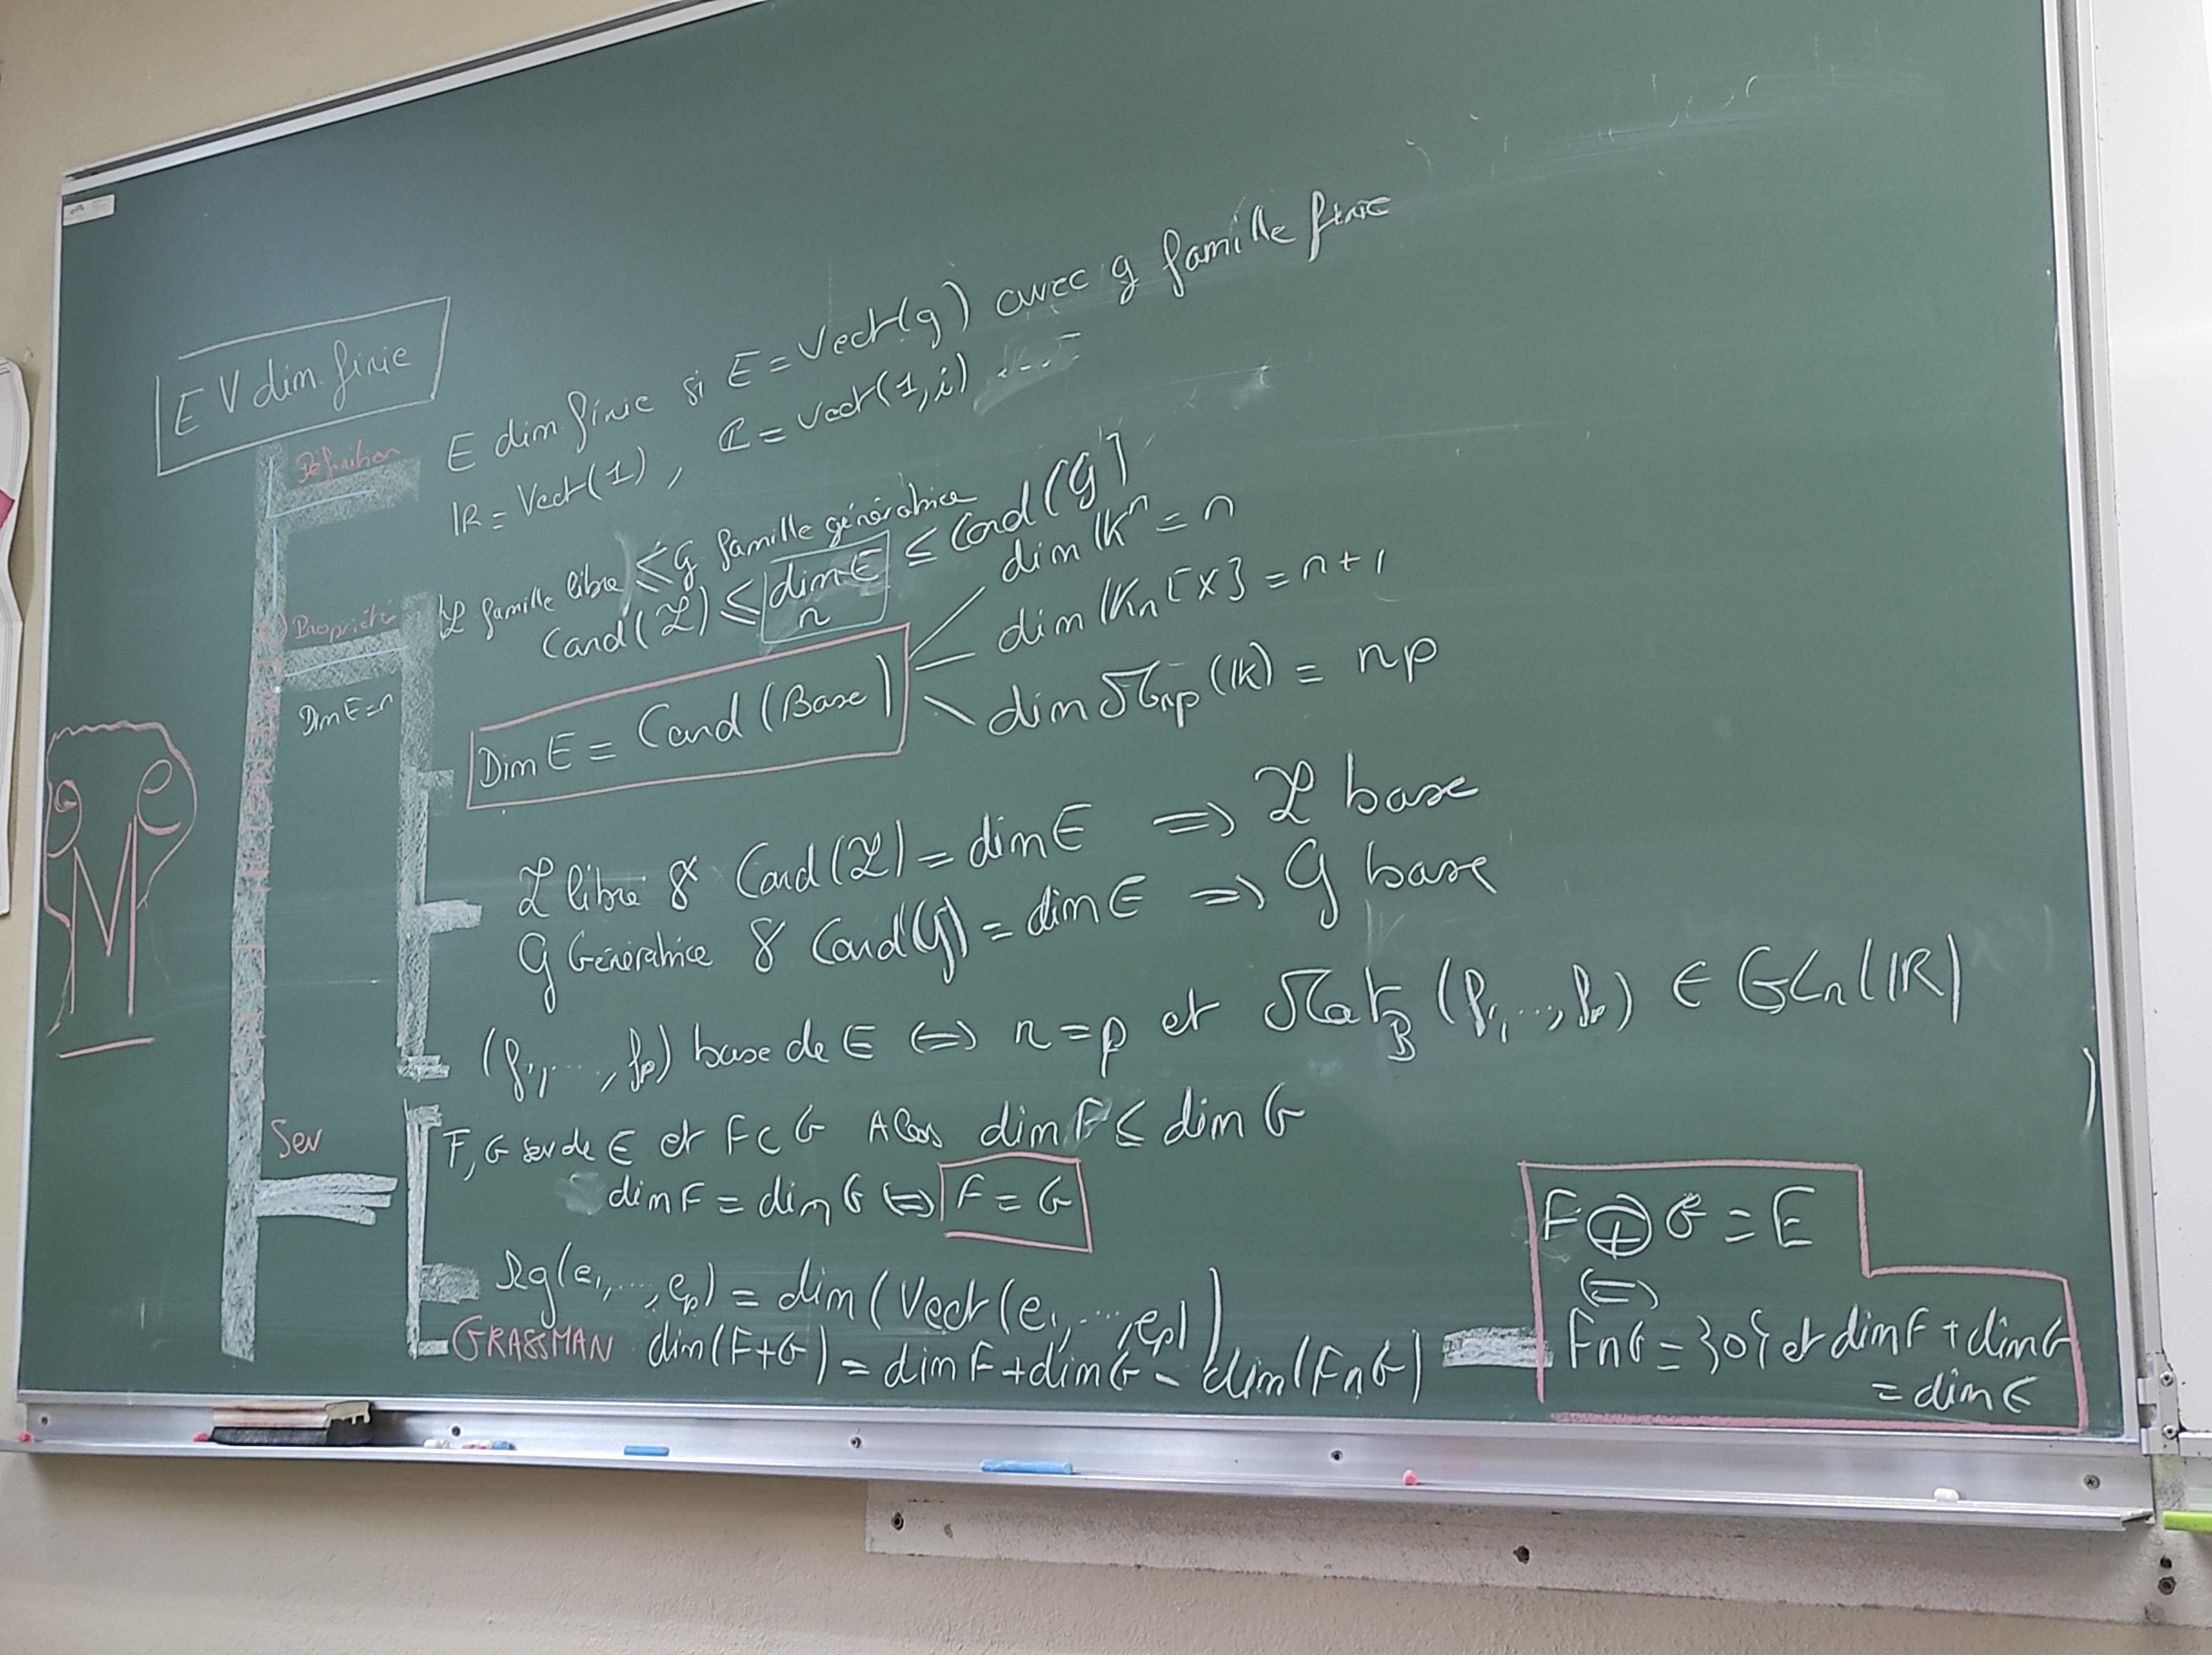 EV dim. finie
Définition
E dim finie si E = Vect(G) avec G famille finie
ℝ = Vect(1), ℂ = Vect(1, i) ....
Propriété
ℒ famille libre ⩽ G famille génératrice
Card(ℒ) ⩽ dim E ≤ Card(G)
n
Dim E = n
Dim E = Card (Base)
dim 𝕂ⁿ = n
dim 𝕂n[X] = n+1
dim ℳnp(𝕂) = np
ℒ libre & Card(ℒ) = dim E ⟹ ℒ base
G Génératrice & Card(G) = dim E ⟹ G base
(f1, ..., fp) base de E ⟺ n = p et MatB (f1, ..., fp) ∈ GLn(ℝ)
Sev
F, G sev de E et F ⊂ G Alors dim F ≤ dim G
dim F = dim G ⟺ F = G
Rg(e1, ..., ep) = dim(Vect(e1, ..., ep))
GRASSMAN dim(F+G) = dim F + dim G - dim(F∩G)
F ⊕ G = E
⟺
F∩G = {0} et dim F + dim G
= dim E